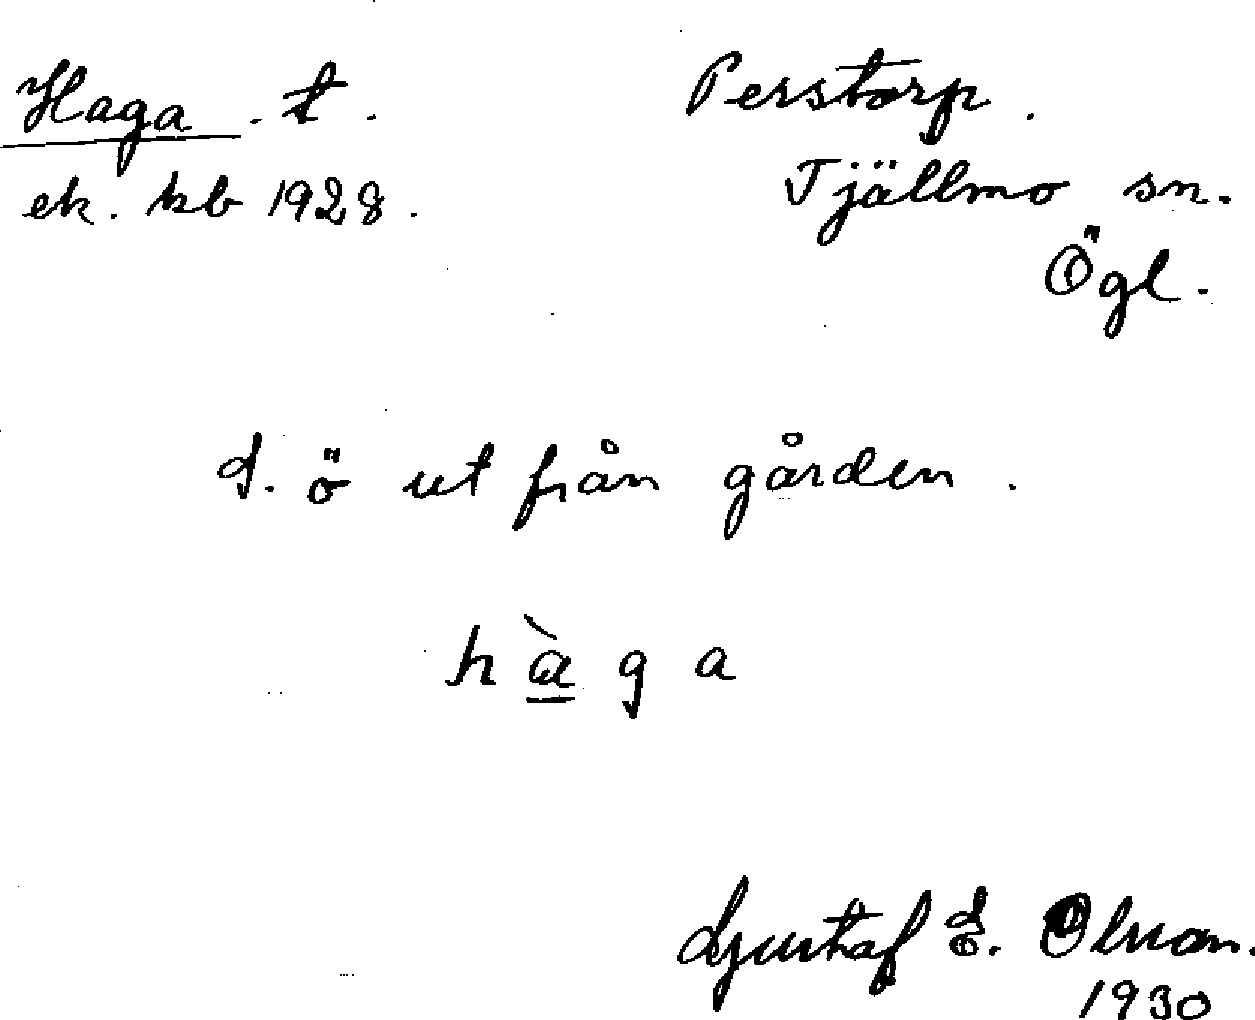 Haga . t.
Perstorp.
ek. kb 1928.
Tjällmo sn.
Ögl.
ö ut från gården.
hàga
Gustaf E. Olson.
1930